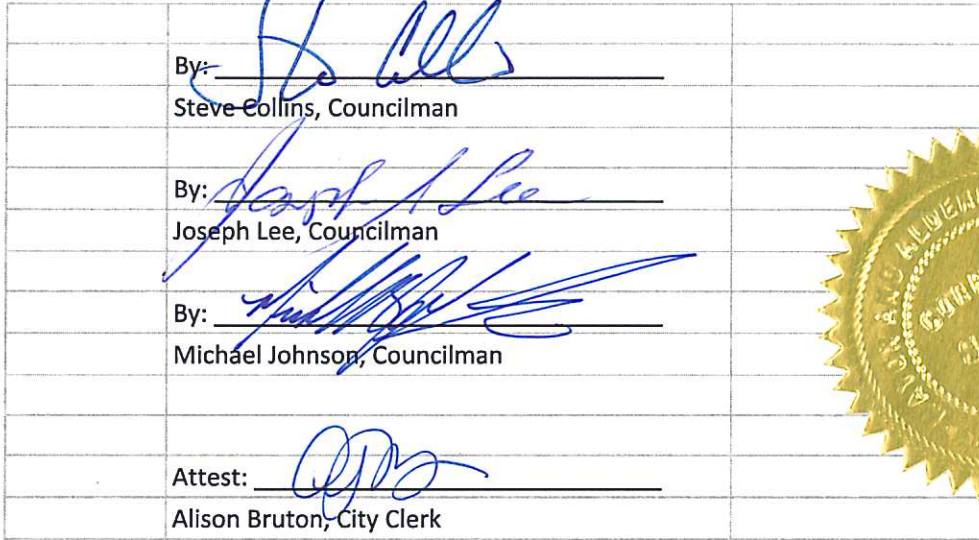 By:
Steve Collins, Councilman
By: Joseph A Lee
Joseph Lee, Councilman
By:
Michael Johnson, Councilman
Attest:
Alison Bruton, City Clerk